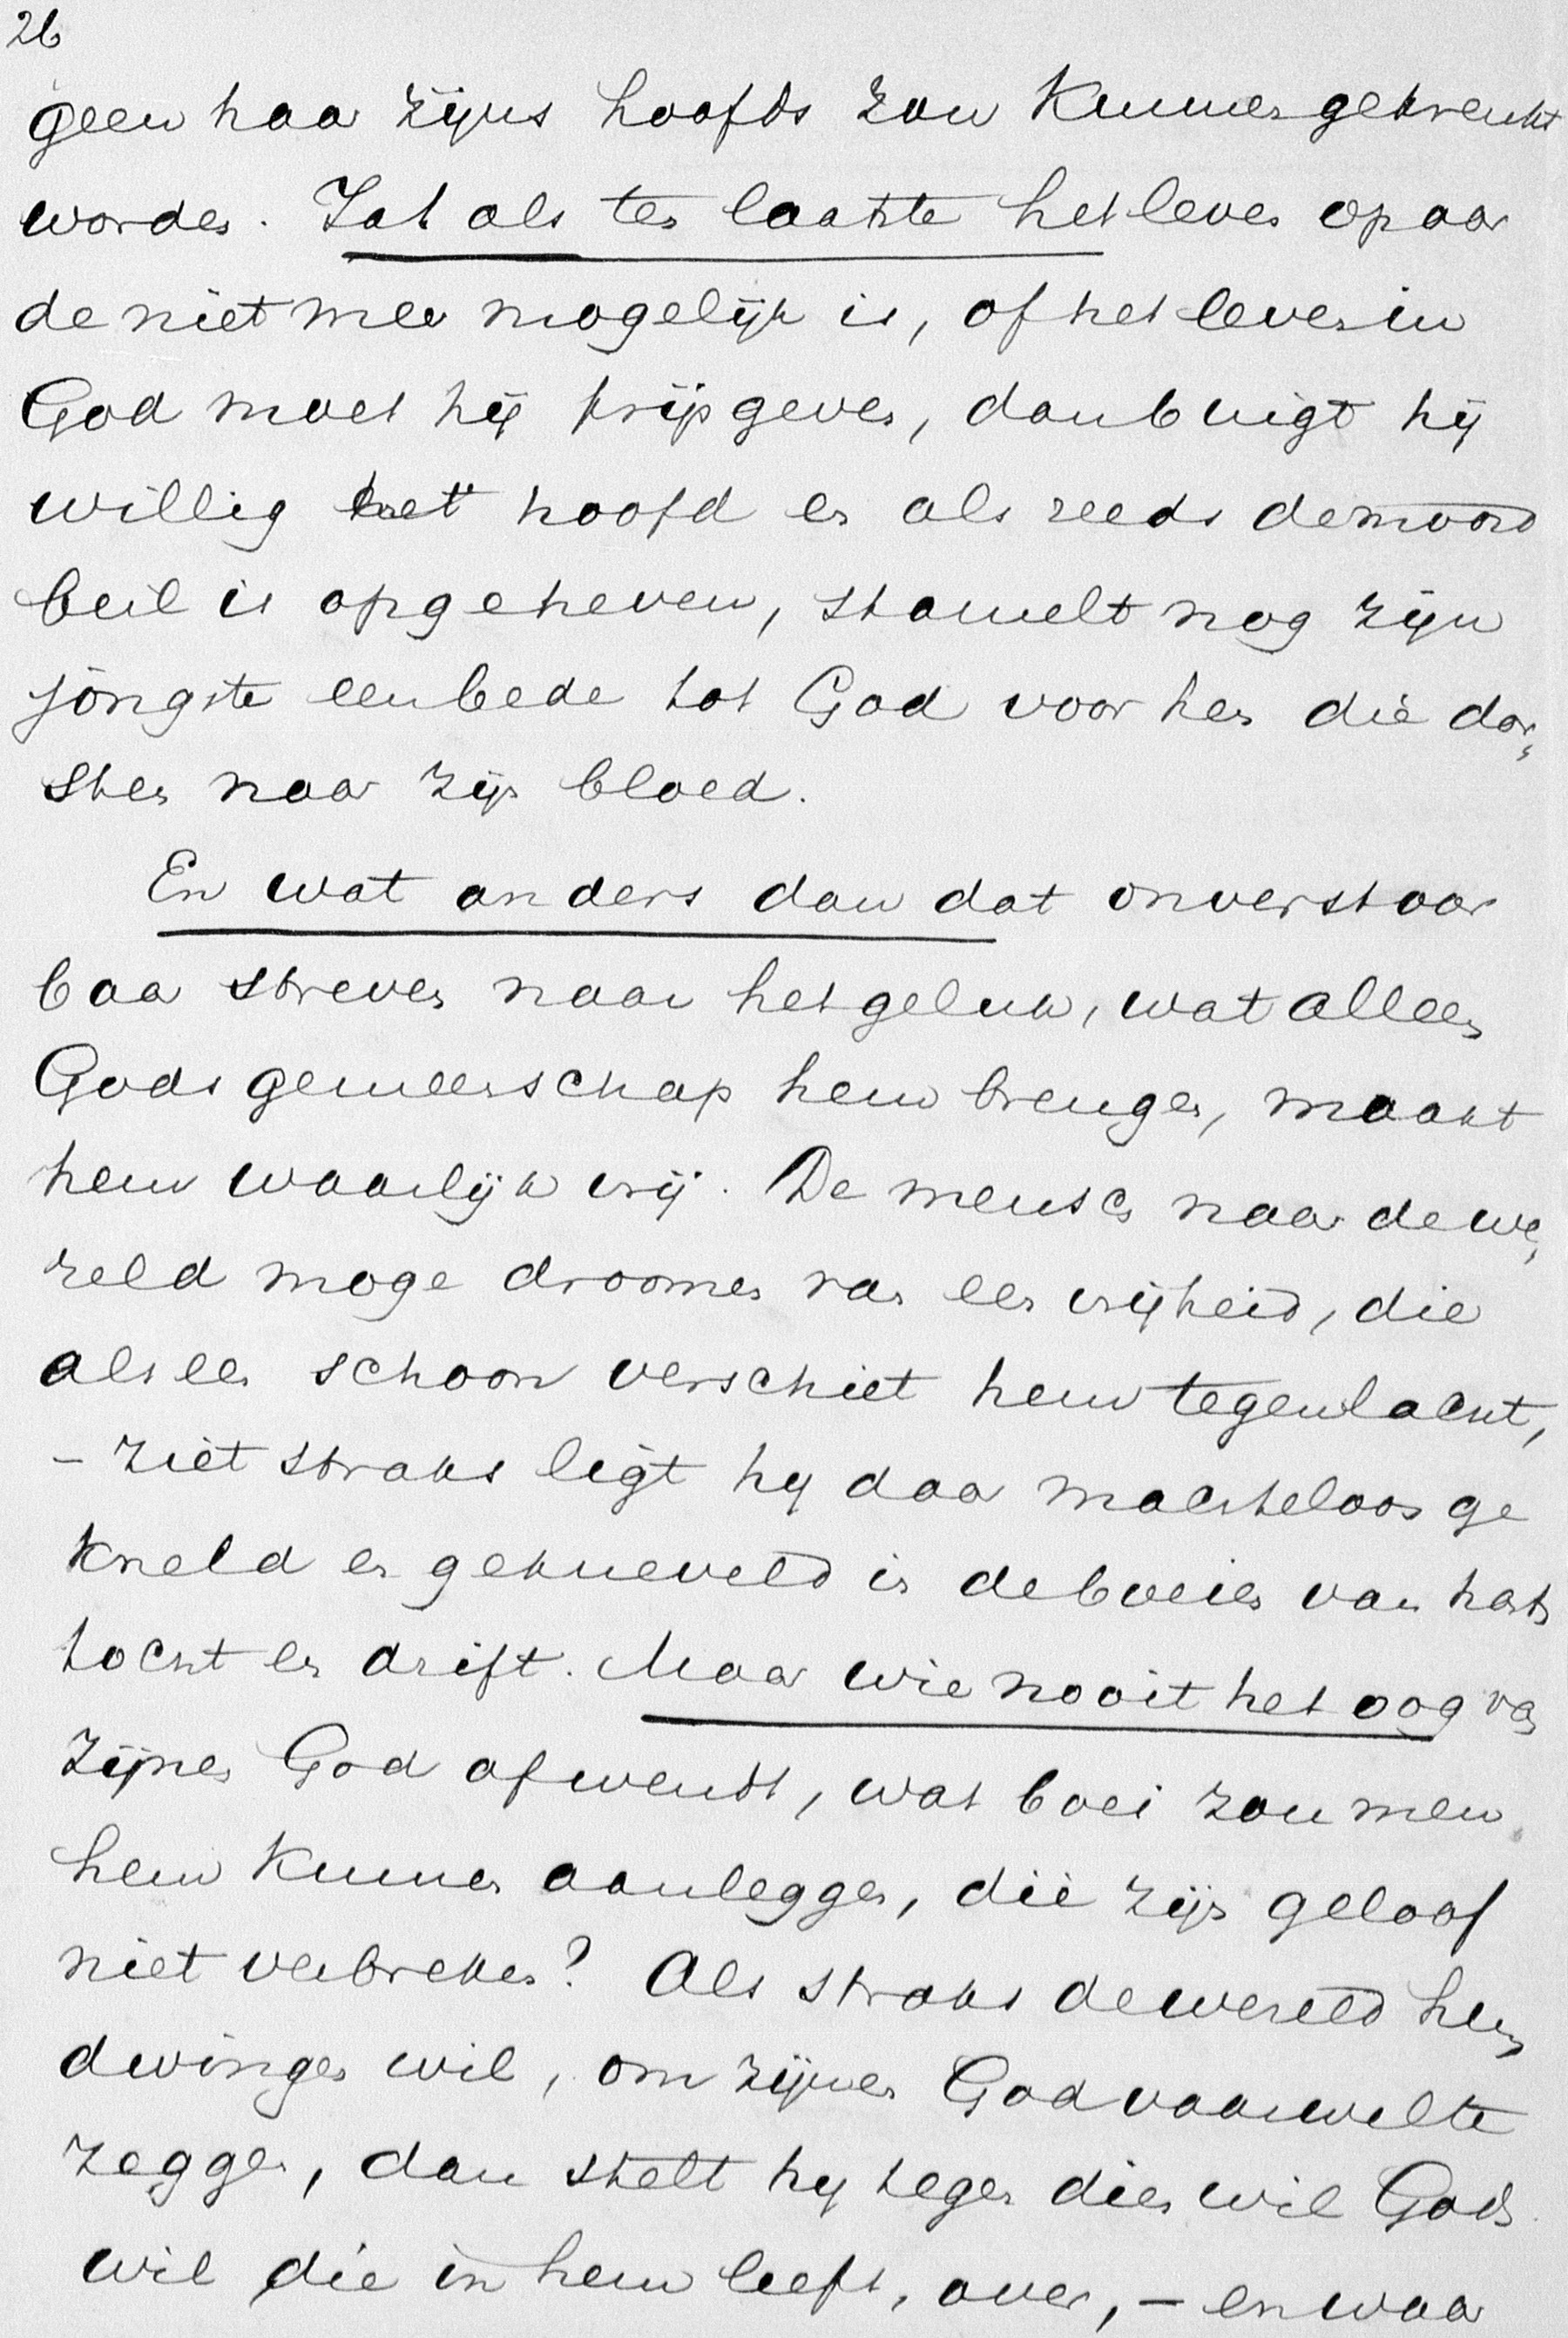 26
geen haar zijns hoofds zou kunnen gekrenkt
worden. Tot als ten laatste het leven op aar
de niet meer mogelijk is, of het leven in
God moet hij prijs geven, dan buigt hij
willig het hoofd en als reeds de moord
beil is opgeheven, stamelt nog zijn
jongste een bede tot God voor hen die dor„
sten naar zijn bloed.
En wat anders dan dat onverstoor
baar streven naar het geluk, wat alleen
Gods gemeenschap hem brengen, maakt
hem waarlijk vrij. De mensch naar de we„
reld moge droomen van een vrijheid, die
als een schoon verschiet hem tegenlacht,
- ziet straks ligt hij daar machteloos ge
kneld en gekneveld in de boeien van harts
tocht en drift. Maar wie nooit het oog van
zijnen God afwendt, wat boei zou men
hem kunnen aanleggen, die zijn geloof
niet verbreken? Als straks de wereld hem
dwingen wil, om zijnen God vaarwel te
zeggen, dan stelt hij tegen dien wil Gods
wil die in hem leeft, over, - en waar